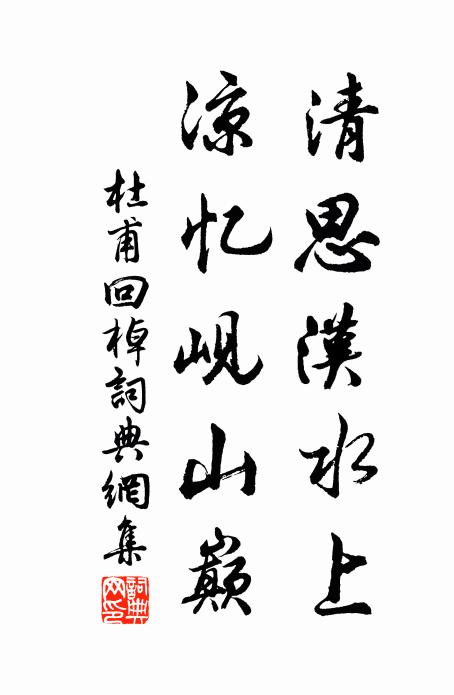 清思漢水上
涼忆峴山巔
杜甫回棹詞典網集
詞典网印